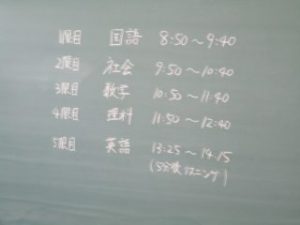 1限目 国語 8:50～9:40
2限目 社会 9:50～10:40
3限目 数学 10:50～11:40
4限目 理科 11:50～12:40
5限目 英語 13:25～14:15
(5分後リスニング)